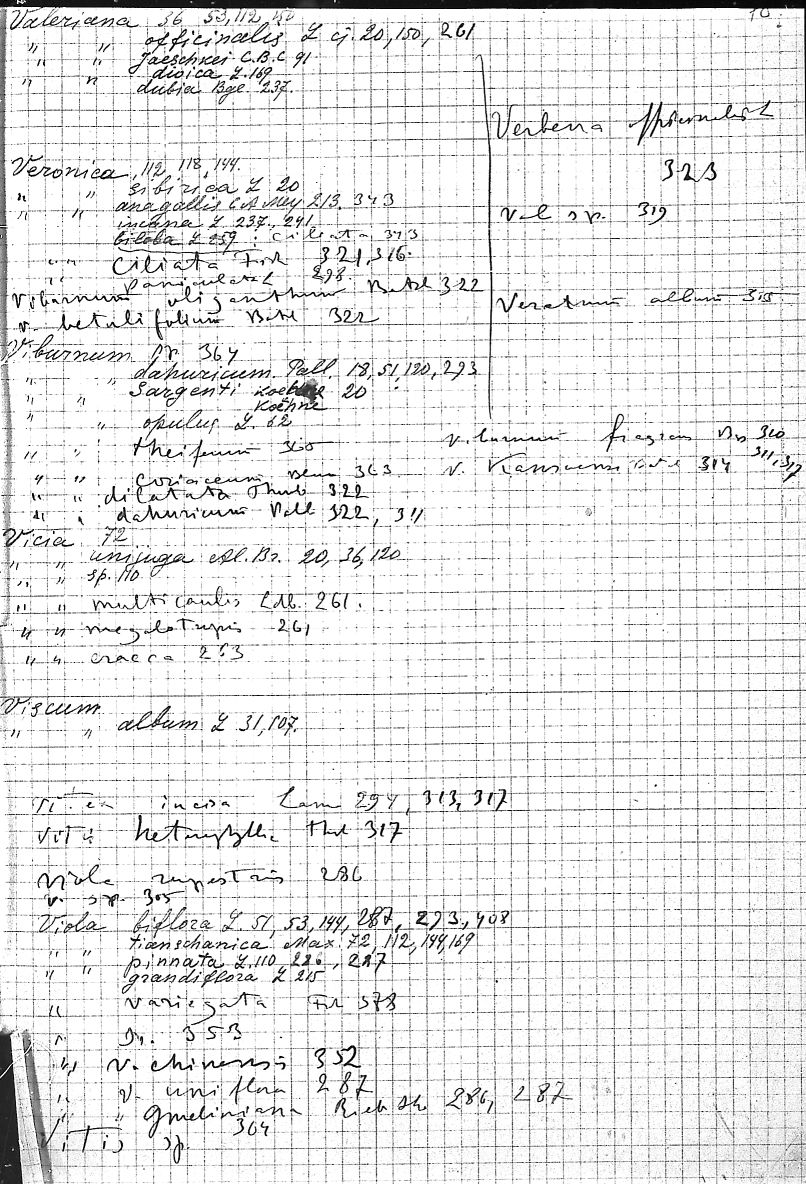 70
Valeriana 36 53, 112, 150
" " officinalis L cj. 20, 150, 261
" " Jaeschkei C.B.C 91
" " dioica L. 169
dubia Bge 237.
Verbena
323
Veronica, 112, 118, 144.
" sibirica L 20
" " anagallis C.A.Mey 213. 343
incana L 237, 241
biloba L 259; ciliata 343
" " ciliata Fisch 321, 316.
" paniculata 298
Val sp. 319
Viburnum oliganthum Batal 322
V. betulifolium Batal 322
Veratrum album 315
Viburnum sp. 364
" " dahuricum Pall 18, 51, 120, 293
" " Sargenti Koehne 20
Koehne
" " opulus L. 62
Viburnum fragrans Bge 320
" " theiferum 360
V. Kansuense Batal 314 311, 317
" " coriaceum Blum 363
" " dilatata Thunb 322
" " dahuricum Pall 322, 311
Vicia 72
" " unijuga Al.Br. 20, 36, 120
" " sp. 110
" " multicaulis Ldb. 261.
" " megalotropis 261
" " cracca 263
Viscum
" " album L 31, 107.
Vitex incisa Lam 294, 313, 317
Vitis heterophylla Thnb 317
Viola rupestris 286
V. sp. 305
Viola biflora L. 51, 53, 144, 287, 293, 408
" " tianschanica Max. 72, 112, 144, 169
" " pinnata L. 110 286, 287
" grandiflora L 215
" variegata Fisch 378
" sp. 353
" V. chinensis 352
" V. uniflora 287
" " Gmeliniana 286, 287
Vitis sp. 304